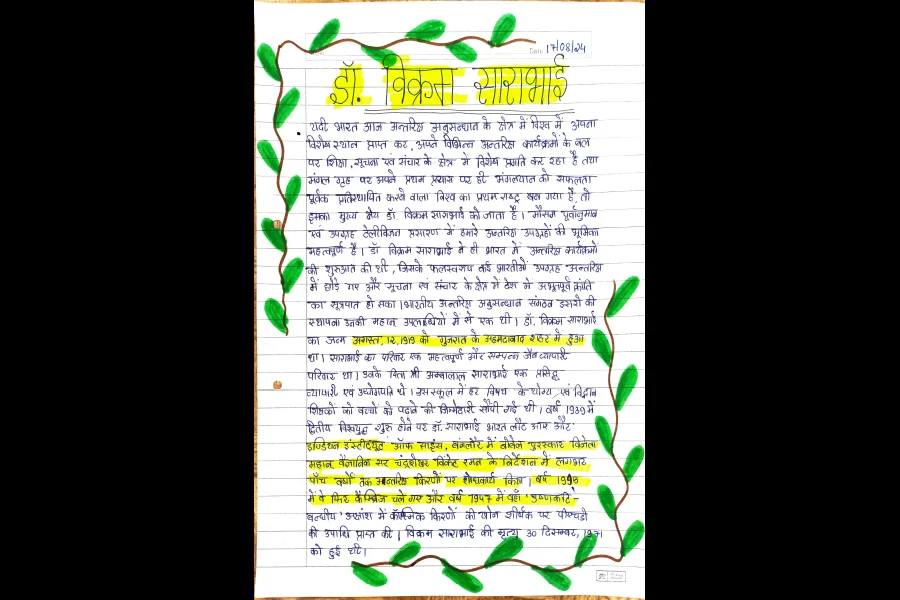 Date 17/08/24
डॉ. विक्रम साराभाई
यदी भारत आज अन्तरिक्ष अनुसन्धान के क्षेत्र में विश्व में अपना
विशेष स्थान प्राप्त कर, अपने विभिन्न अन्तरिक्ष कार्यक्रमों के बल
पर शिक्षा, सूचना एवं संचार के क्षेत्र में विशेष प्रगति कर रहा है तथा
मंगल ग्रह पर अपने प्रथम प्रयास पर ही मंगलयान को सफलता
पूर्वक प्रतिस्थापित करने वाला विश्व का प्रथम राष्ट्र बन गया है, तो
इसका मुख्य श्रेय डॉ. विक्रम साराभाई को जाता है। मौसम पूर्वानुमान
एवं उपग्रह टेलीविजन प्रसारण में हमारे अन्तरिक्ष उपग्रहों की भूमिका
महत्वपूर्ण है। डॉ विक्रम साराभाई ने ही भारत में अन्तरिक्ष कार्यक्रमों
की शुरुआत की थी, जिसके फलस्वरूप कई भारतीओं उपग्रह अन्तरिक्ष
में छोड़े गए और सूचना एवं संचार के क्षेत्र में देश में अभूतपूर्व क्रांति
का सूत्रपात हो सका। भारतीय अन्तरिक्ष अनुसन्धान संगठन इसरो की
स्थापना उनकी महान उपलब्धियों में से एक थी। डॉ. विक्रम साराभाई
का जन्म अगस्त, 12, 1919 को गुजरात के अहमदाबाद शहर में हुआ
था। साराभाई का परिवार एक महत्वपूर्ण और सम्पन्न जैन व्यापारी
परिवार था। उनके पिता श्री अम्बालाल साराभाई एक प्रसिद्ध
व्यापारी एवं उद्योगपति थे। इस स्कूल में हर विषय के योग्य एवं विद्वान
शिक्षकों को बच्चों को पढ़ाने की जिम्मेदारी सौंपी गई थी। वर्ष 1939 में
द्वितीय विश्वयुद्ध शुरू होने पर डॉ. साराभाई भारत लौट आए और
इण्डियन इंस्टीट्यूट ऑफ साइंस, बंगलौर में नोबेल पुरस्कार विजेता
महान वैज्ञानिक सर चंद्रशेखर वेंकट रमन के निर्देशन में लगभग
पाँच वर्षों तक अन्तरिक्ष किरणों पर शोधकार्य किया। वर्ष
में वे फिर कैम्ब्रिज चले गए और वर्ष 1947 में वहाँ 'उष्णकटि-
बन्धीय' अक्षांश में कॉस्मिक किरणों की खोज शीर्षक पर पीएचडी
की उपाधि प्राप्त की। विक्रम साराभाई की मृत्यु 30 दिसम्बर, 1971
को हुई थी।